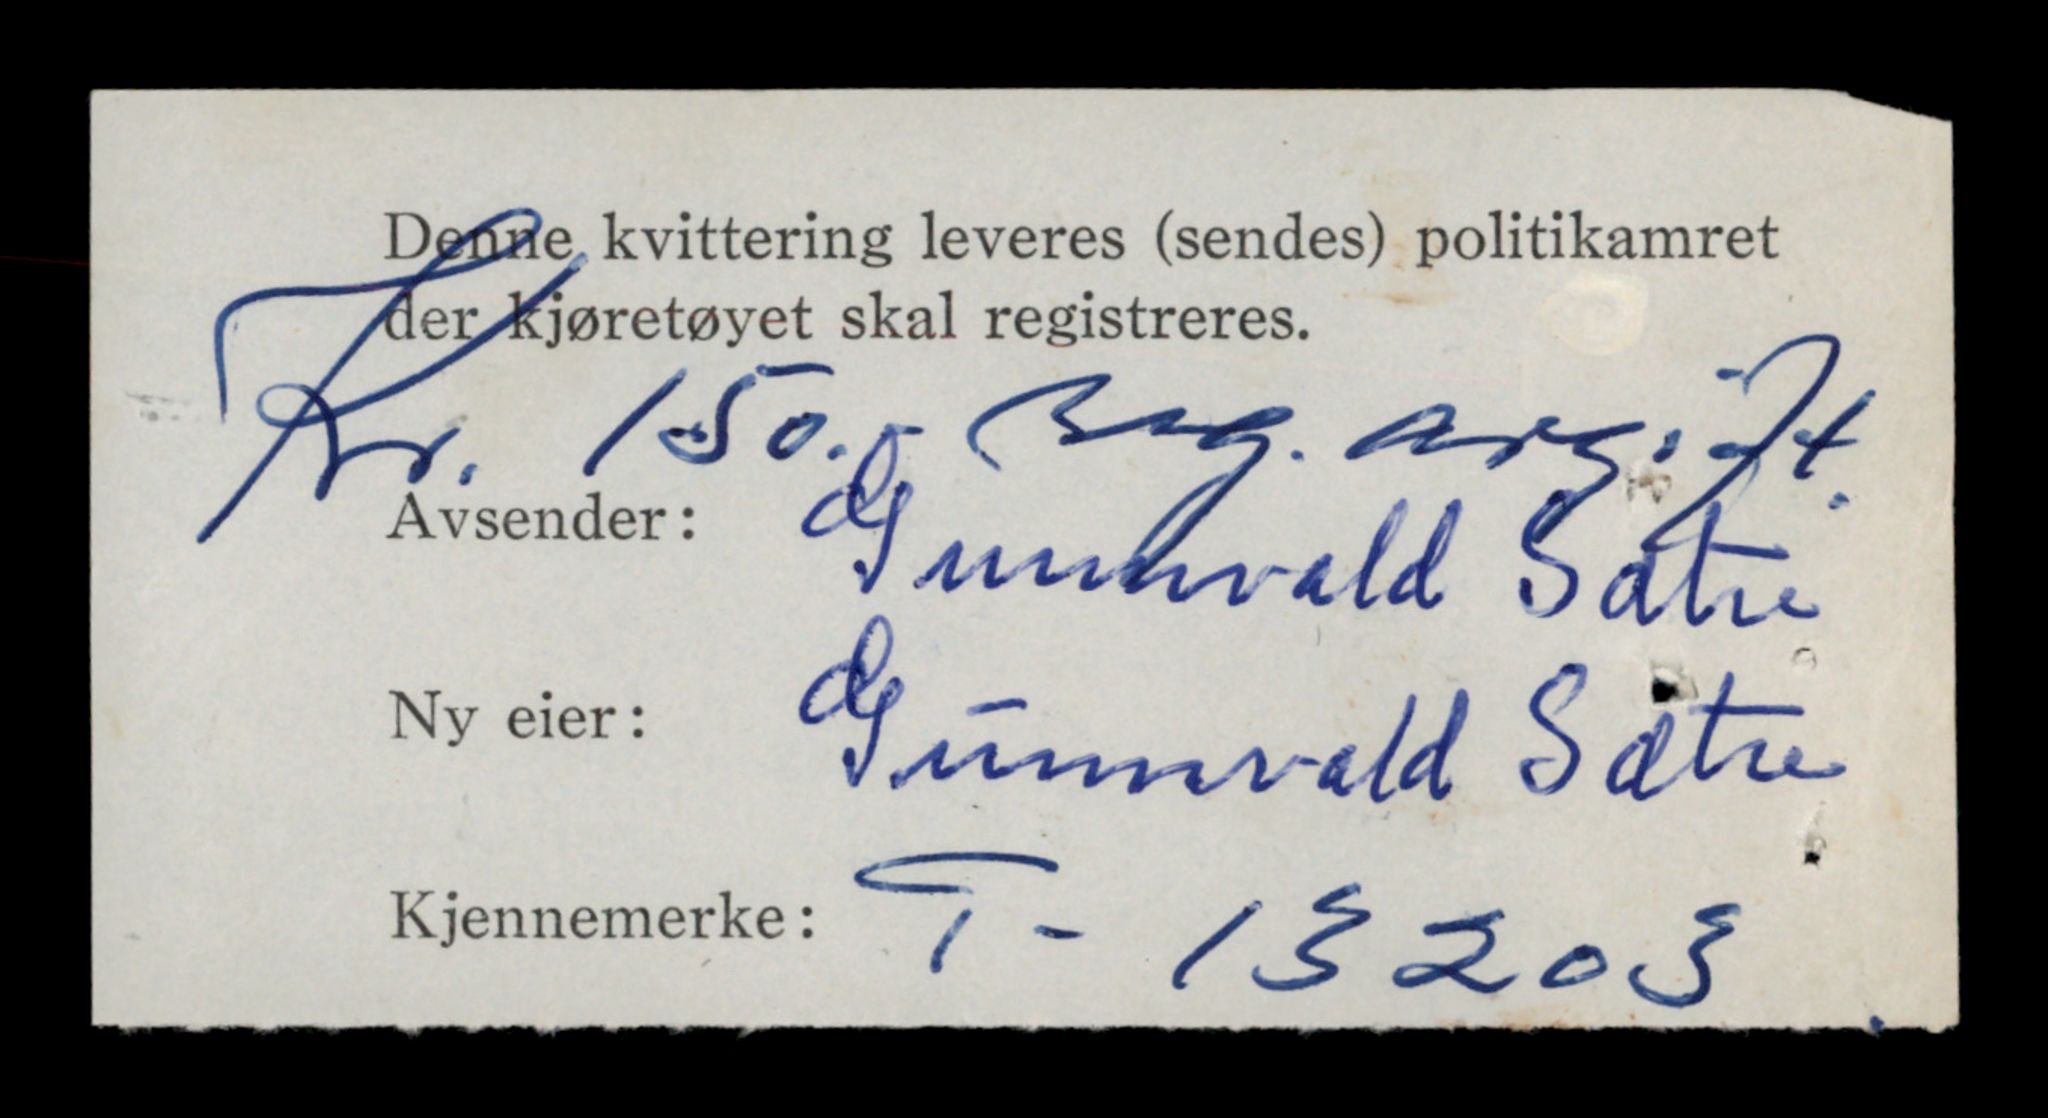 Denne kvittering leveres (sendes) politikamret
der kjøretøyet skal registreres.
Kr. 150.- Reg. avgift.
Avsender: Gunnvald Sætre
Ny eier: Gunnvald Sætre
Kjennemerke: T- 13203